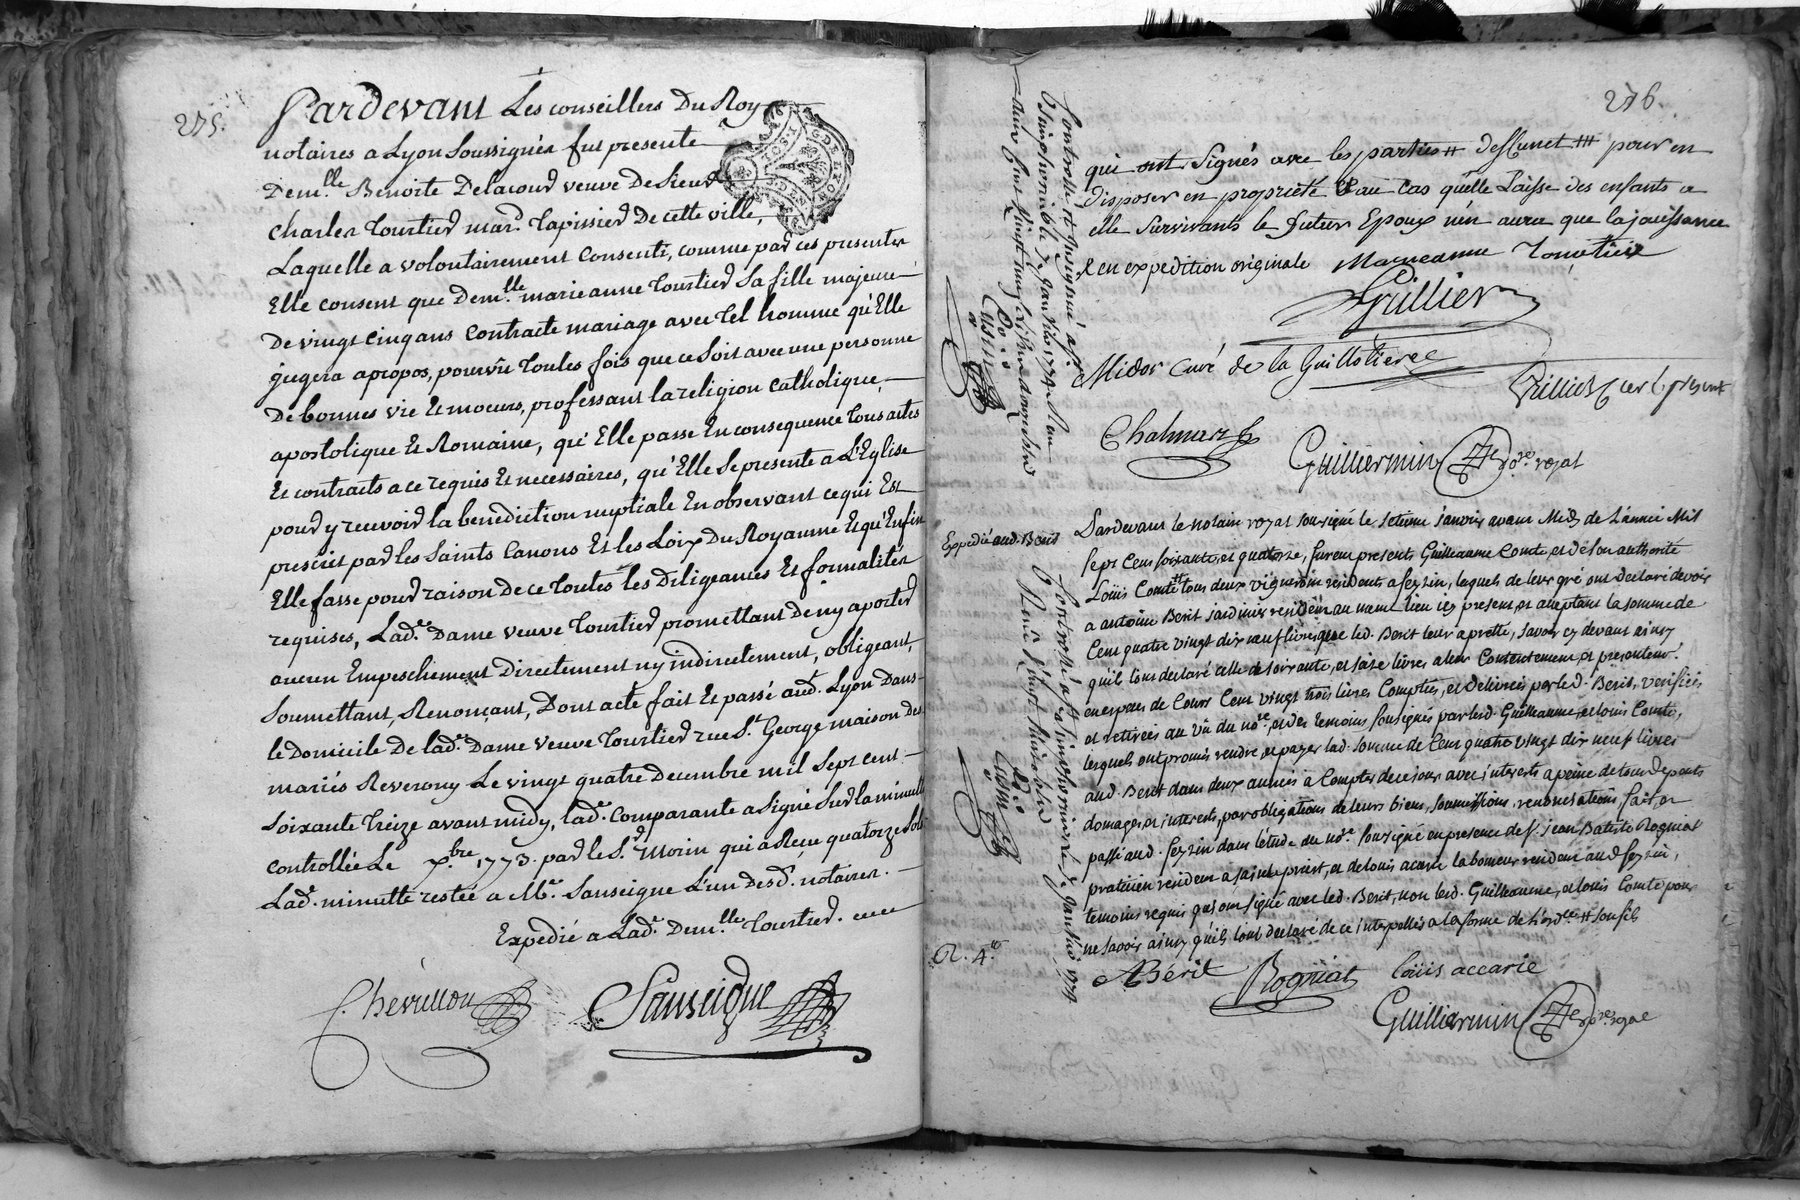 275.
Pardevant Les conseillers Du Roy
notaires a Lyon Soussignés fut presente
Demlle Benoite Delacour veuve De Sieur
Charles Tourtier mar. Tapissier De cette ville,
Laquelle a volontairement Consenti, comme par ces presentes
Elle consent que Demlle marieanne Tourtier Sa fille majeure
De vingt cinq ans Contracte mariage avec tel homme qu'Elle
jugera apropos, pourvû Toutes fois que ce Soit avec une personne
De bonnes vie Et moeurs, professant la religion Catholique,
apostolique Et Romaine, qu'Elle passe En consequence Tous actes
Et contracts a ce requis Et necessaires, qu'Elle Se presente a L'Eglise
pour y recevoir la benediction nuptiale En observant ce qui Est
prescrit par les Saints Canons Et les Loix Du Royaume Et qu'Enfin
Elle fasse pour raison De ce Toutes les Diligeances Et formalités
requises, Lade. Dame veuve Tourtier promettant De ny aporter
aucun Empeschement Directement ny indirectement, obligeant,
Soumettant, Renonçant, Dont acte fait Et passé aud. Lyon Dans
le Domicile De lade. Dame veuve Tourtier rue St. George maison Des
mariés Reverony Le vingt quatre Decembre mil Sept cent
Soixante Treize avant midy, lade. Comparante a Signé Sur la minutte
Controllée Le xbre 1773. par le Sr. Morin qui a Reçu quatorze Sols
Lade. minutte restée a Me. Sanseigne L'un Desd. notaires.
Expedié a Lade. Demlle Tourtier.
Chevillon Sanseigne
276.
qui ont Signés avec les parties pour en
disposer en propriété Et au cas qu'elle Laisse des enfants a
elle Survivants le futur Epoux n'en aura que la jouissance
en expedition originale Marieanne Tourtier
Guillier
Midor Curé de la Guillotiere
Guilliermin re royal
Expedié aud. Berit
Pardevant le notaire royal Soussigné le Setieme janvier avant Midy de L'année Mil
Sept Cent soixante et quatorze, furent presents Guilleaume Comte et de Son authorité
Loüis Comte tous deux vignerons residents a feyzin, lequels de leur gré ont declaré devoir
a antoine Berit jardinier resident au meme lieu icy present et aceptant la somme de
Cent quatre vingt dix neuf livres que led. Berit leur a pretté, Savoir cy devant ainsy
qu'ils l'ont declaré celle de soixante, et saize livres a leur Contentement, et presentemt.
en especes de Cours Cent vingt trois livres Comptées, et delivrées par led. Berit, verifiées
et retirées au vû du nore, et des temoins Soussignés par lesd. Guilleaume, et loüis Comte,
lesquels ont promis rendre, et payer lad. somme de Cent quatre vingt dix neuf livres
aud. Berit dans deux années a Compter de ce jour avec interets a peine de tous depents
domages, et interets, par obligations de leurs biens, Soumissions, renonciations, fait, et
passé aud. feyzin dans l'étude du nore. Soussigné en presence de Sr. jean Batiste Rogniat
praticien resident a saint priest, et de loüis acarie laboureur resident aud. feyzin,
temoins requis qui ont signé avec led. Berit, non lesd. Guilleaume, et loüis Comte pour
ne savoir ainsy qu'ils l'ont declaré de ce interpellés a la forme de L'ordce. son fils
R. 4.
ABérit Rogniat loüis accarie
Guilliermin re royal